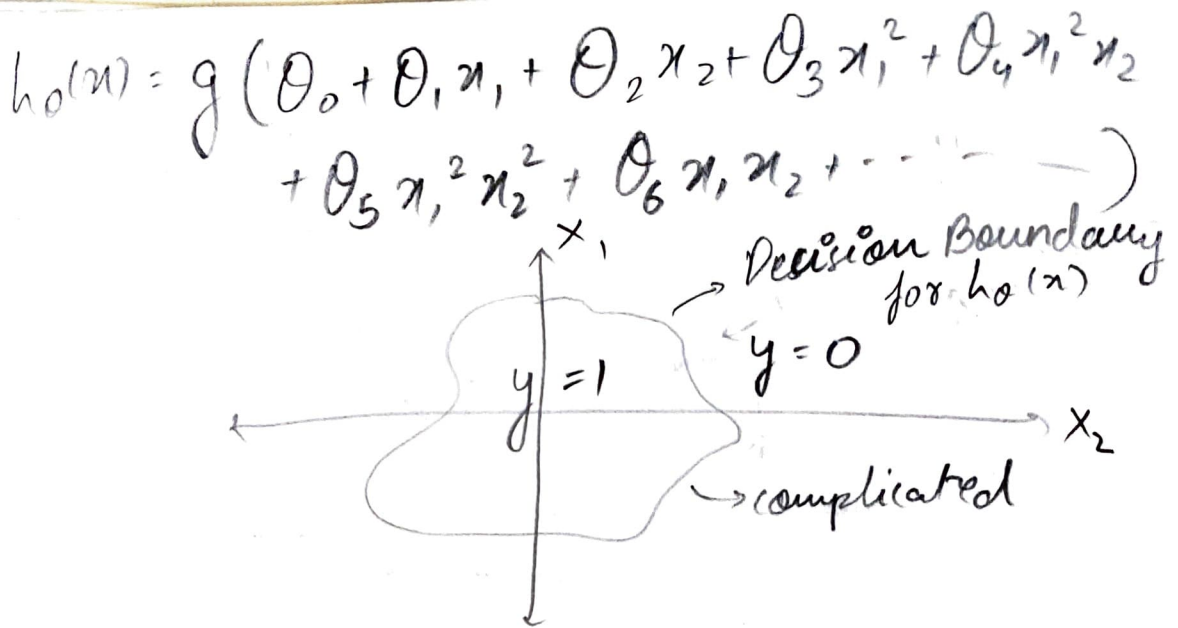 hθ(x) = g(θ₀ + θ₁x₁ + θ₂x₂ + θ₃x₁² + θ₄x₁²x₂
+ θ₅x₁²x₂² + θ₆x₁x₂ + ------)
X₁
Decision Boundary
for hθ(x)
y = 0
y = 1
X₂
complicated